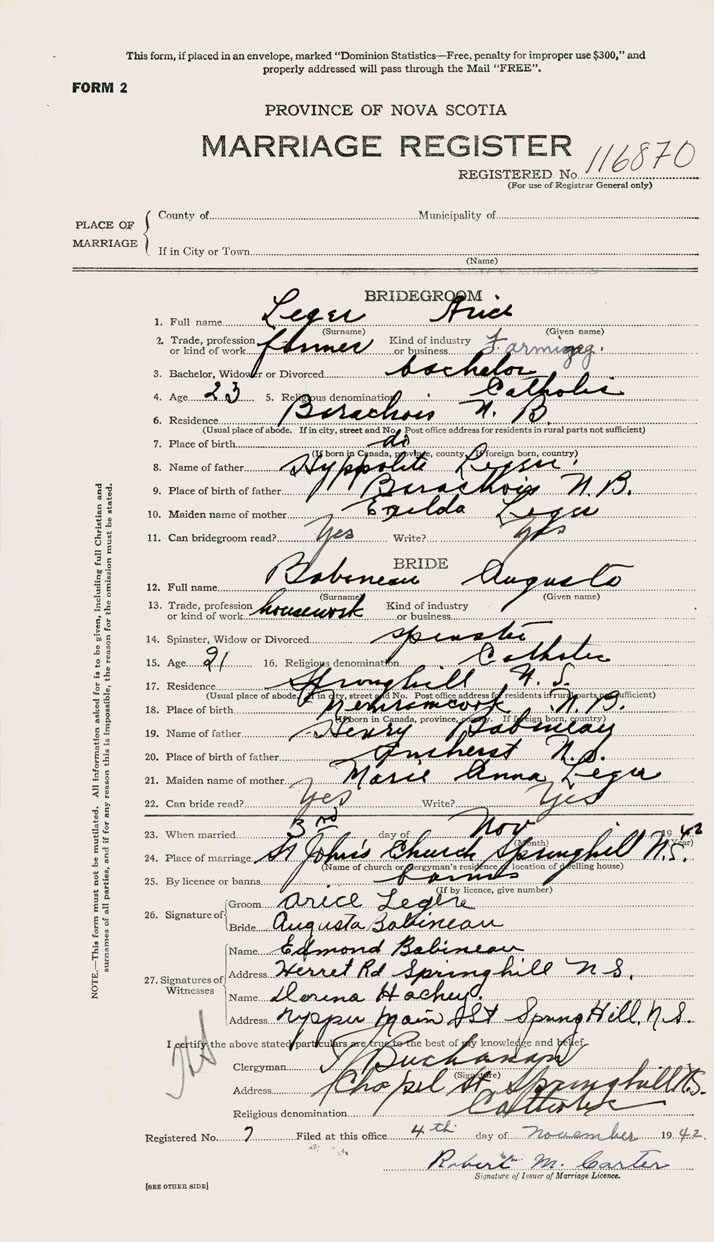 This form, if placed in an envelope, marked "Dominion Statistics—Free, penalty for improper use $300," and
properly addressed will pass through the Mail "FREE".
FORM 2
PROVINCE OF NOVA SCOTIA
MARRIAGE REGISTER
REGISTERED No. 116870
(For use of Registrar General only)
PLACE OF MARRIAGE
County of Municipality of
If in City or Town
(Name)
BRIDEGROOM
1. Full name Leger Arice
(Surname) (Given name)
2. Trade, profession or kind of work farmer Kind of industry or business Farming
3. Bachelor, Widower or Divorced bachelor
4. Age 23 5. Religious denomination Catholic
6. Residence Barachois N. B.
(Usual place of abode. If in city, street and No. Post office address for residents in rural parts not sufficient)
7. Place of birth do
(If born in Canada, province, county. If foreign born, country)
8. Name of father Hyppolite Leger
9. Place of birth of father Barachois N. B.
10. Maiden name of mother Exilda Leger
11. Can bridegroom read? Yes Write? Yes
BRIDE
12. Full name Babineau Augusta
(Surname) (Given name)
13. Trade, profession or kind of work housework Kind of industry or business
14. Spinster, Widow or Divorced spinster
15. Age 21 16. Religious denomination Catholic
17. Residence Springhill N. S.
(Usual place of abode. If in city, street and No. Post office address for residents in rural parts not sufficient)
18. Place of birth Memramcook N. B.
(If born in Canada, province, county. If foreign born, country)
19. Name of father Henry Babineau
20. Place of birth of father Amherst N. S.
21. Maiden name of mother Marie Anna Leger
22. Can bride read? Yes Write? Yes
23. When married 3rd day of Nov 1942
(Month) (Year)
24. Place of marriage St John's Church Springhill N.S.
(Name of church or clergyman's residence or location of dwelling house)
25. By licence or banns banns
(If by licence, give number)
26. Signature of
Groom Arice Legere
Bride Augusta Babineau
27. Signatures of Witnesses
Name Edmond Babineau
Address Herret Rd Springhill N S.
Name Dorina Hachey.
Address Upper Main St Spring Hill. N.S.
I certify the above stated particulars are true to the best of my knowledge and belief.
Clergyman Buchanan
(Signature)
Address Chapel St. Springhill N.S.
Religious denomination Catholic
Registered No. 7 Filed at this office 4th day of November 1942.
Robert M. Carter
Signature of Issuer of Marriage Licence.
[SEE OTHER SIDE]
NOTE.—This form must not be mutilated. All information asked for is to be given, including full Christian and
surnames of all parties, and if for any reason this is impossible, the reason for the omission must be stated.